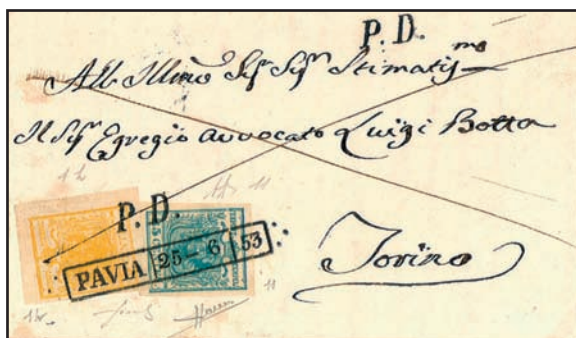 P. D.
All Illmo Sigr Sigr Stimatismo
Il Sigr Egregio avvocato Luigi Botta
P. D.
PAVIA 25 - 6 53
Torino
11
11